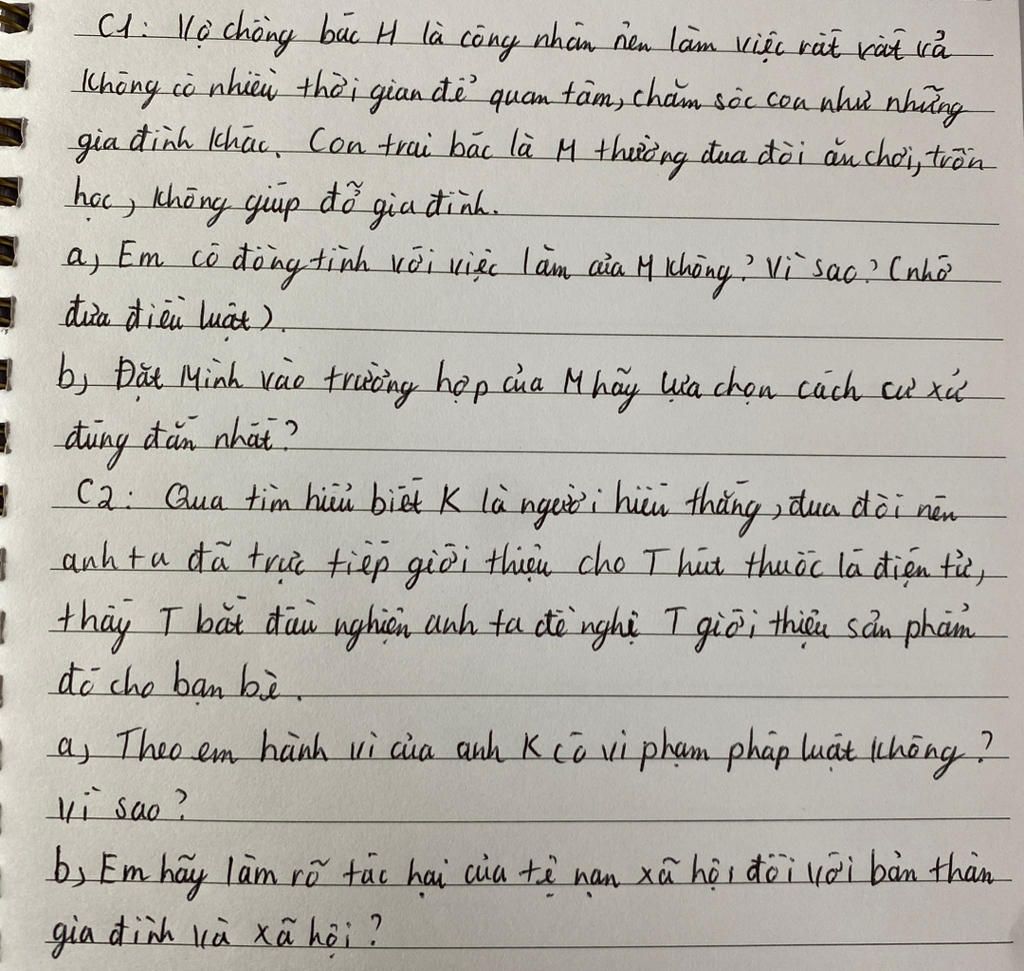 C1: Vợ chồng bác H là công nhân nên làm việc rất vất vả
không có nhiều thời gian để quan tâm, chăm sóc con như những
gia đình khác. Con trai bác là M thường đua đòi ăn chơi, trốn
học, không giúp đỡ gia đình.
a, Em có đồng tình với việc làm của M không? Vì sao? (nhớ
đưa điều luật).
b, Đặt Mình vào trường hợp của M hãy lựa chọn cách cư xử
đúng đắn nhất?
C2: Qua tìm hiểu biết K là người hiếu thắng, đua đòi nên
anh ta đã trực tiếp giới thiệu cho T hút thuốc lá điện tử,
thấy T bắt đầu nghiện anh ta đề nghị T giới thiệu sản phẩm
đó cho bạn bè.
a, Theo em hành vi của anh K có vi phạm pháp luật không?
Vì sao?
b, Em hãy làm rõ tác hại của tệ nạn xã hội đối với bản thân
gia đình và xã hội?